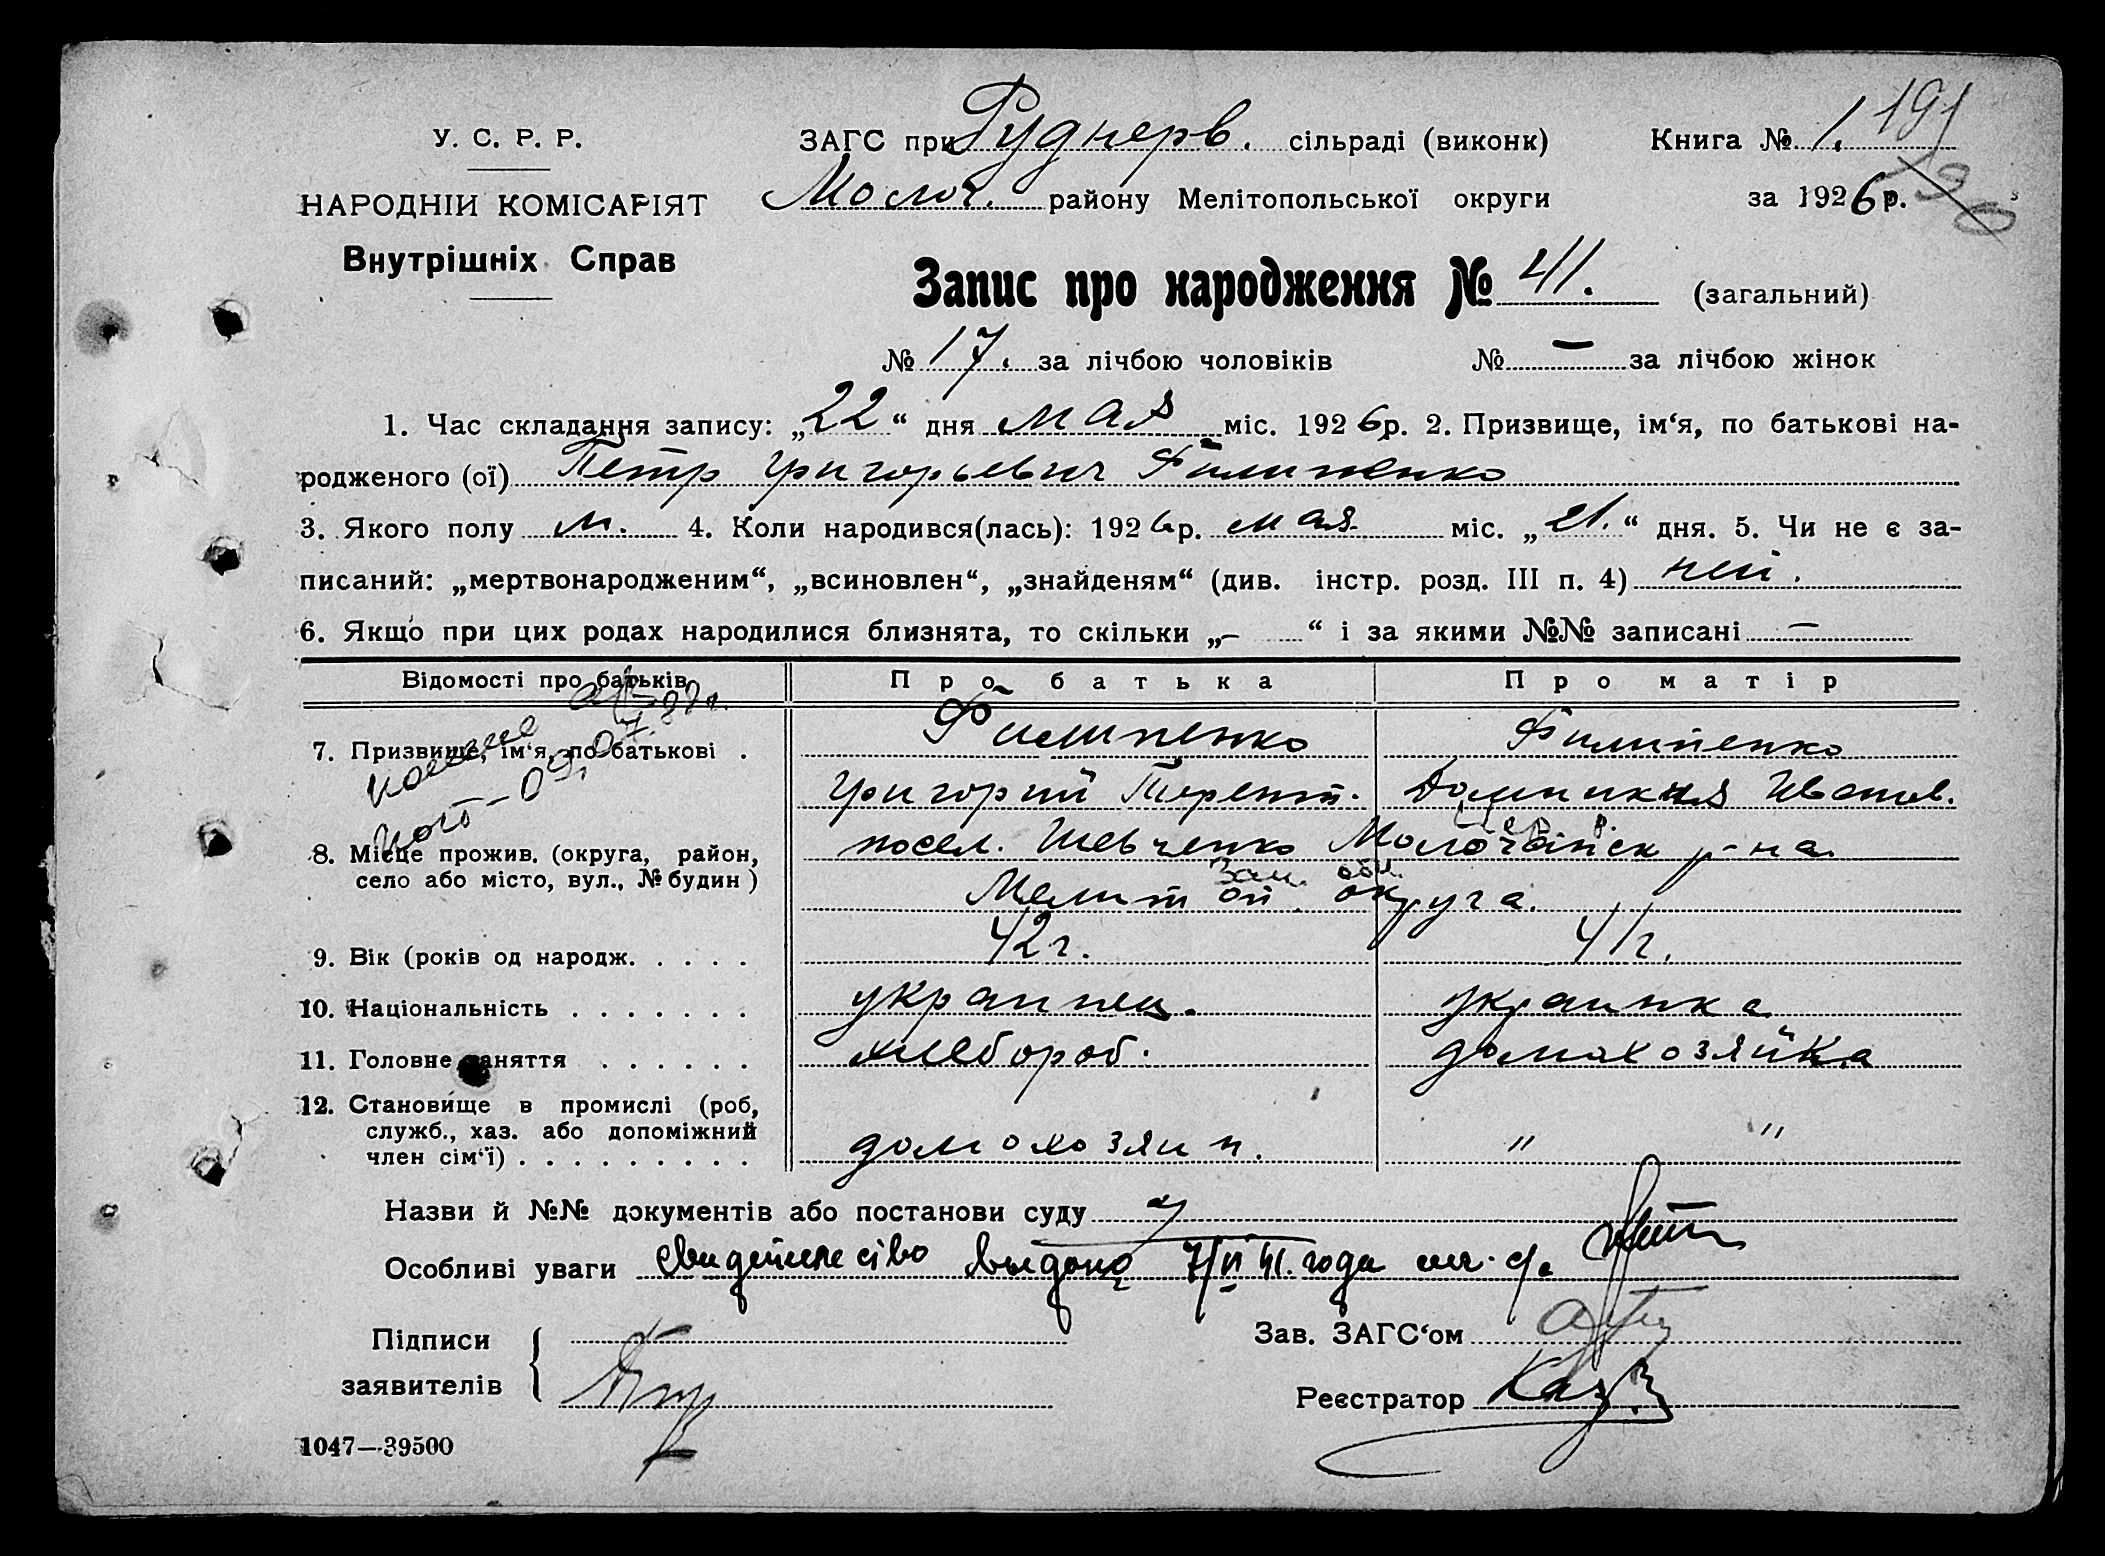 191
У. С. Р. Р. ЗАГС при Руднерв. сільраді (виконк) Книга № 1.
НАРОДНІЙ КОМІСАРІЯТ Молоч. району Мелітопольської округи за 1926 р. 30
Внутрішніх Справ
Запис про народження № 41. (загальний)
№ 17. за лічбою чоловіків № — за лічбою жінок
1. Час складання запису: „22“ дня мая міс. 1926 р. 2. Призвище, ім‘я, по батькові на-
родженого (ої) Петр Григорьевич Филипенко
3. Якого полу м. 4. Коли народився(лась): 1926 р. мая міс. „21.“ дня. 5. Чи не є за-
писаний: „мертвонародженим“, „всиновлен“, „знайденям“ (див. інстр. розд. III п. 4) ней.
6. Якщо при цих родах народилися близнята, то скільки „— “ і за якими №№ записані —
Відомості про батьків Про батька Про матір
7. Призвище, ім‘я, по батькові . Филипенко Филипенко
Григорий Терент. Домникия Иванов.
8. Місце прожив. (округа, район, посел. Шевченко Молочанск р-на
село або місто, вул., № будин) Мелитоп. округа.
Зап. обл.
9. Вік (років од народж. . . . . 42 г. 41 г.
10. Національність . . . . . . . украинец. украинка
11. Головне заняття . . . . . . хлебороб. домохозяйка
12. Становище в промислі (роб,
служб., хаз. або допоміжний
член сім‘ї) . . . . . . . . . домохозяин. " "
Назви й №№ документів або постанови суду
Особливі уваги Свидетельство выдано 7/VI 41. года
Підписи
заявителів
Зав. ЗАГС‘ом
Реєстратор
1047—39500